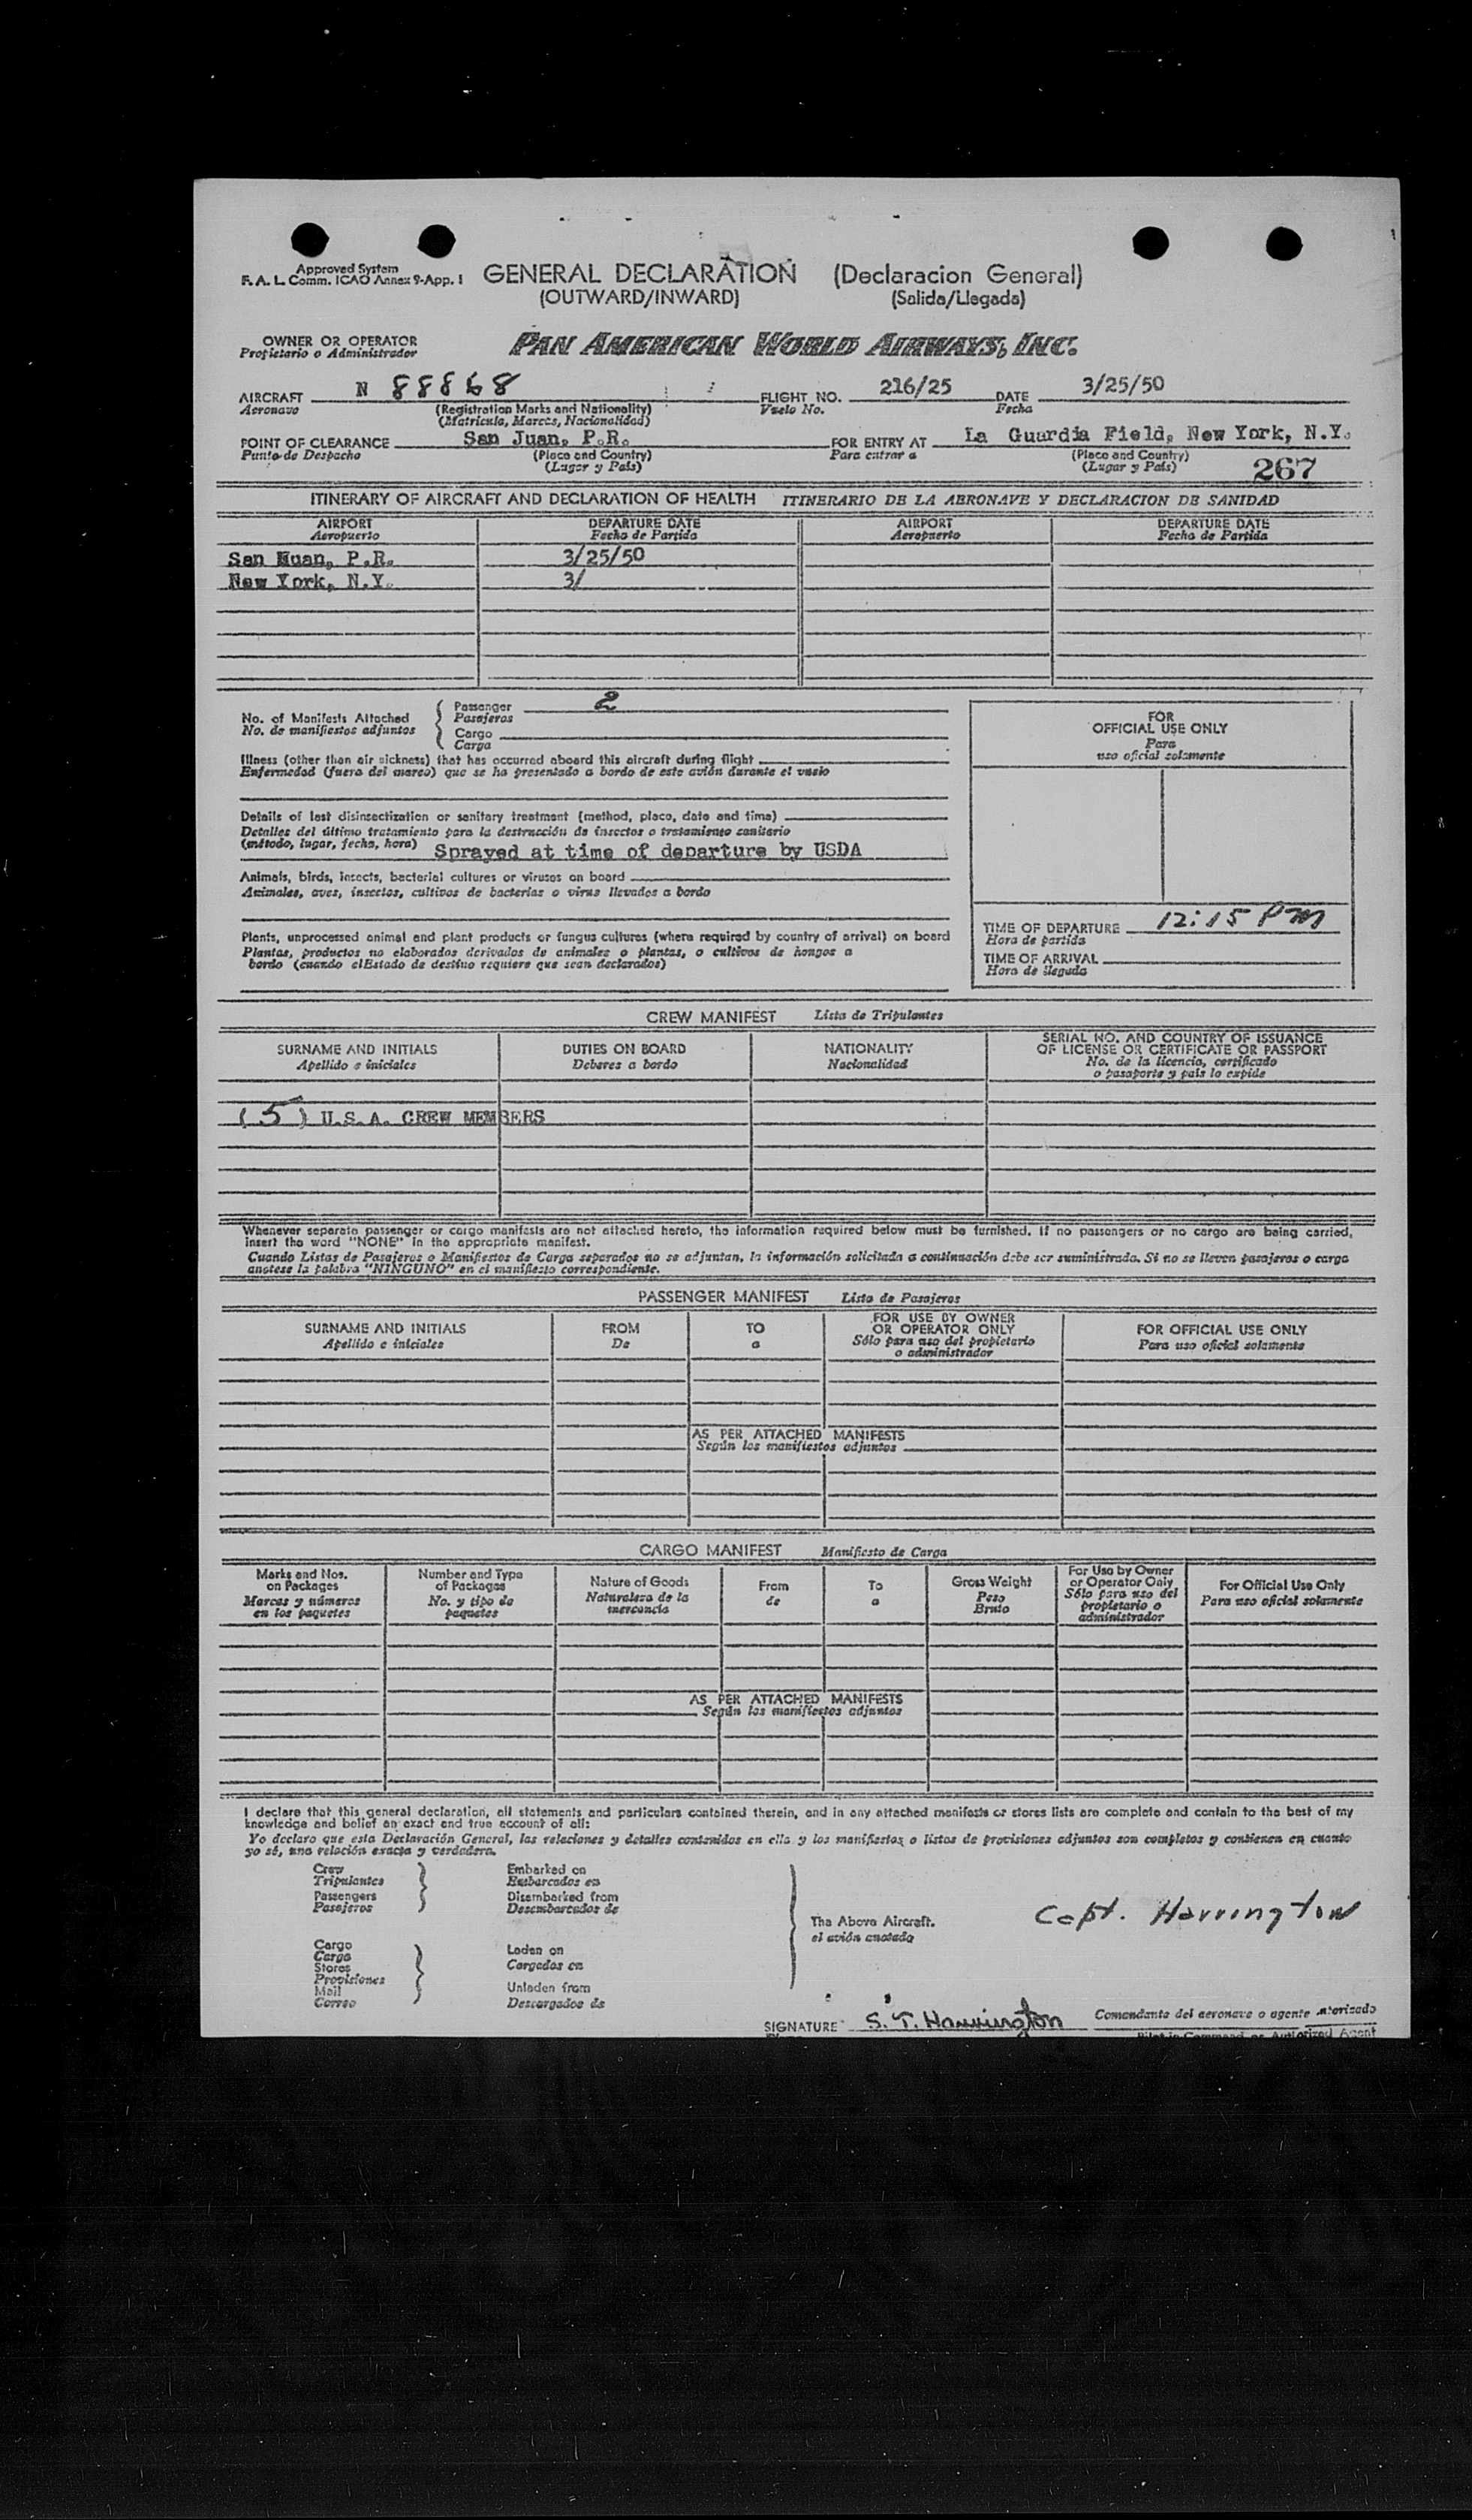 Approved System
F. A. L. Comm. ICAO Annex 9-App. 1
GENERAL DECLARATION (Declaracion General)
(OUTWARD/INWARD) (Salida/Llegada)
OWNER OR OPERATOR
Propietario o Administrador
PAN AMERICAN WORLD AIRWAYS, INC.
AIRCRAFT N 88868 FLIGHT NO. 216/25 DATE 3/25/50
Aeronave (Registration Marks and Nationality) Vuelo No. Fecha
(Matricula, Marcas, Nacionalidad)
POINT OF CLEARANCE San Juan, P.R. FOR ENTRY AT La Guardia Field, New York, N.Y.
Punto de Despacho (Place and Country) Para entrar a (Place and Country)
(Lugar y País) (Lugar y País) 267
ITINERARY OF AIRCRAFT AND DECLARATION OF HEALTH ITINERARIO DE LA AERONAVE Y DECLARACION DE SANIDAD
AIRPORT DEPARTURE DATE AIRPORT DEPARTURE DATE
Aeropuerto Fecha de Partida Aeropuerto Fecha de Partida
San Huan, P.R. 3/25/50
New York, N.Y. 3/
No. of Manifests Attached
No. de manifiestos adjuntos
Passenger 2
Pasajeros
Cargo
Carga
Illness (other than air sickness) that has occurred aboard this aircraft during flight
Enfermedad (fuera del mareo) que se ha presentado a bordo de este avión durante el vuelo
Details of last disinsectization or sanitary treatment (method, place, date and time)
Detalles del último tratamiento para la destrucción de insectos o tratamiento sanitario
(método, lugar, fecha, hora) Sprayed at time of departure by USDA
Animals, birds, insects, bacterial cultures or viruses on board
Animales, aves, insectos, cultivos de bacterias o virus llevados a bordo
Plants, unprocessed animal and plant products or fungus cultures (where required by country of arrival) on board
Plantas, productos no elaborados derivados de animales o plantas, o cultivos de hongos a
bordo (cuando elEstado de destino requiere que sean declarados)
FOR
OFFICIAL USE ONLY
Para
uso oficial solamente
TIME OF DEPARTURE 12:15 PM
Hora de partida
TIME OF ARRIVAL
Hora de llegada
CREW MANIFEST Lista de Tripulantes
SURNAME AND INITIALS DUTIES ON BOARD NATIONALITY SERIAL NO. AND COUNTRY OF ISSUANCE
OF LICENSE OR CERTIFICATE OR PASSPORT
Apellido e iniciales Deberes a bordo Nacionalidad No. de la licencia, certificado
o pasaporte y pais lo expide
( 5 ) U.S.A. CREW MEMBERS
Whenever separate passenger or cargo manifests are not attached hereto, the information required below must be furnished. If no passengers or no cargo are being carried,
insert the word "NONE" in the appropriate manifest.
Cuando Listas de Pasajeros o Manifiestos de Carga separados no se adjuntan, la información solicitada a continuación debe ser suministrada. Si no se lleven pasajeros o carga
anotese la palabra "NINGUNO" en el manifiesto correspondiente.
PASSENGER MANIFEST Lista de Pasajeros
SURNAME AND INITIALS FROM TO FOR USE BY OWNER
OR OPERATOR ONLY FOR OFFICIAL USE ONLY
Apellido e iniciales De a Sólo para uso del propietario
o administrador Para uso oficial solamente
AS PER ATTACHED MANIFESTS
Según los manifiestos adjuntos
CARGO MANIFEST Manifiesto de Carga
Marks and Nos.
on Packages
Marcas y números
en los paquetes
Number and Type
of Packages
No. y tipo de
paquetes
Nature of Goods
Naturaleza de la
mercancia
From
de
To
a
Gross Weight
Peso
Bruto
For Use by Owner
or Operator Only
Sólo para uso del
propietario o
administrador
For Official Use Only
Para uso oficial solamente
AS PER ATTACHED MANIFESTS
Según los manifiestos adjuntos
I declare that this general declaration, all statements and particulars contained therein, and in any attached manifests or stores lists are complete and contain to the best of my
knowledge and belief an exact and true account of all:
Yo declaro que esta Declaración General, las relaciones y detalles contenidos en ella y los manifiestos o listas de provisiones adjuntos son completos y contienen en cuanto
yo sé, una relación exacta y verdadera.
Crew
Tripulantes
Passengers
Pasajeros
Embarked on
Embarcados en
Disembarked from
Desembarcados de
Cargo
Carga
Stores
Provisiones
Mail
Correo
Laden on
Cargados en
Unladen from
Descargados de
The Above Aircraft.
el avión anotado
Capt. Harrington
SIGNATURE S. T. Harrington Comandante del aeronave o agente autorizado
Pilot in Command or Authorized Agent